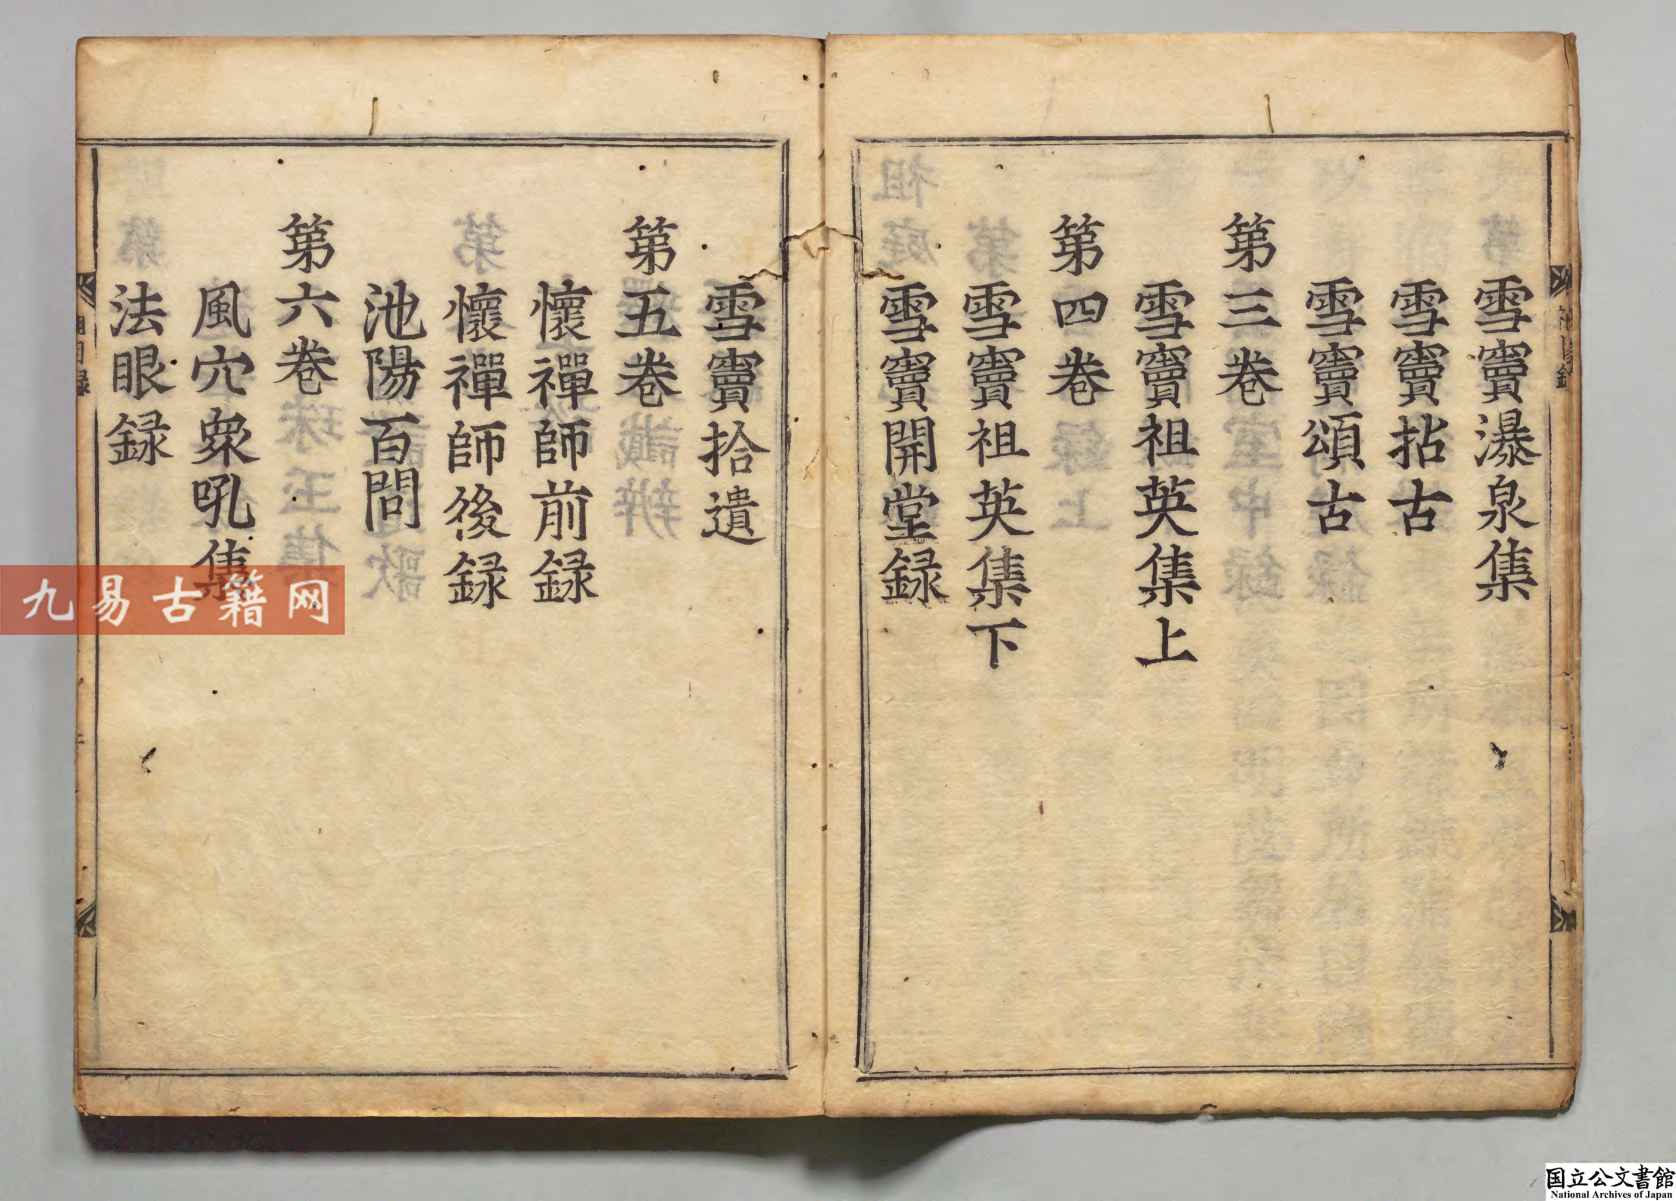 雪竇瀑泉集
雪竇拈古
雪竇頌古
第三巻
雪竇祖英集上
第四巻
雪竇祖英集下
雪竇開堂録
雪竇拾遺
第五巻
懷禪師前録
懷禪師後録
池陽百問
第六巻
風穴衆吼集
法眼録
九易古籍网
国立公文書館
National Archives of Japan